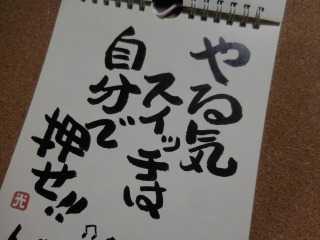 やる気
スイッチは
自分で
押せ!!